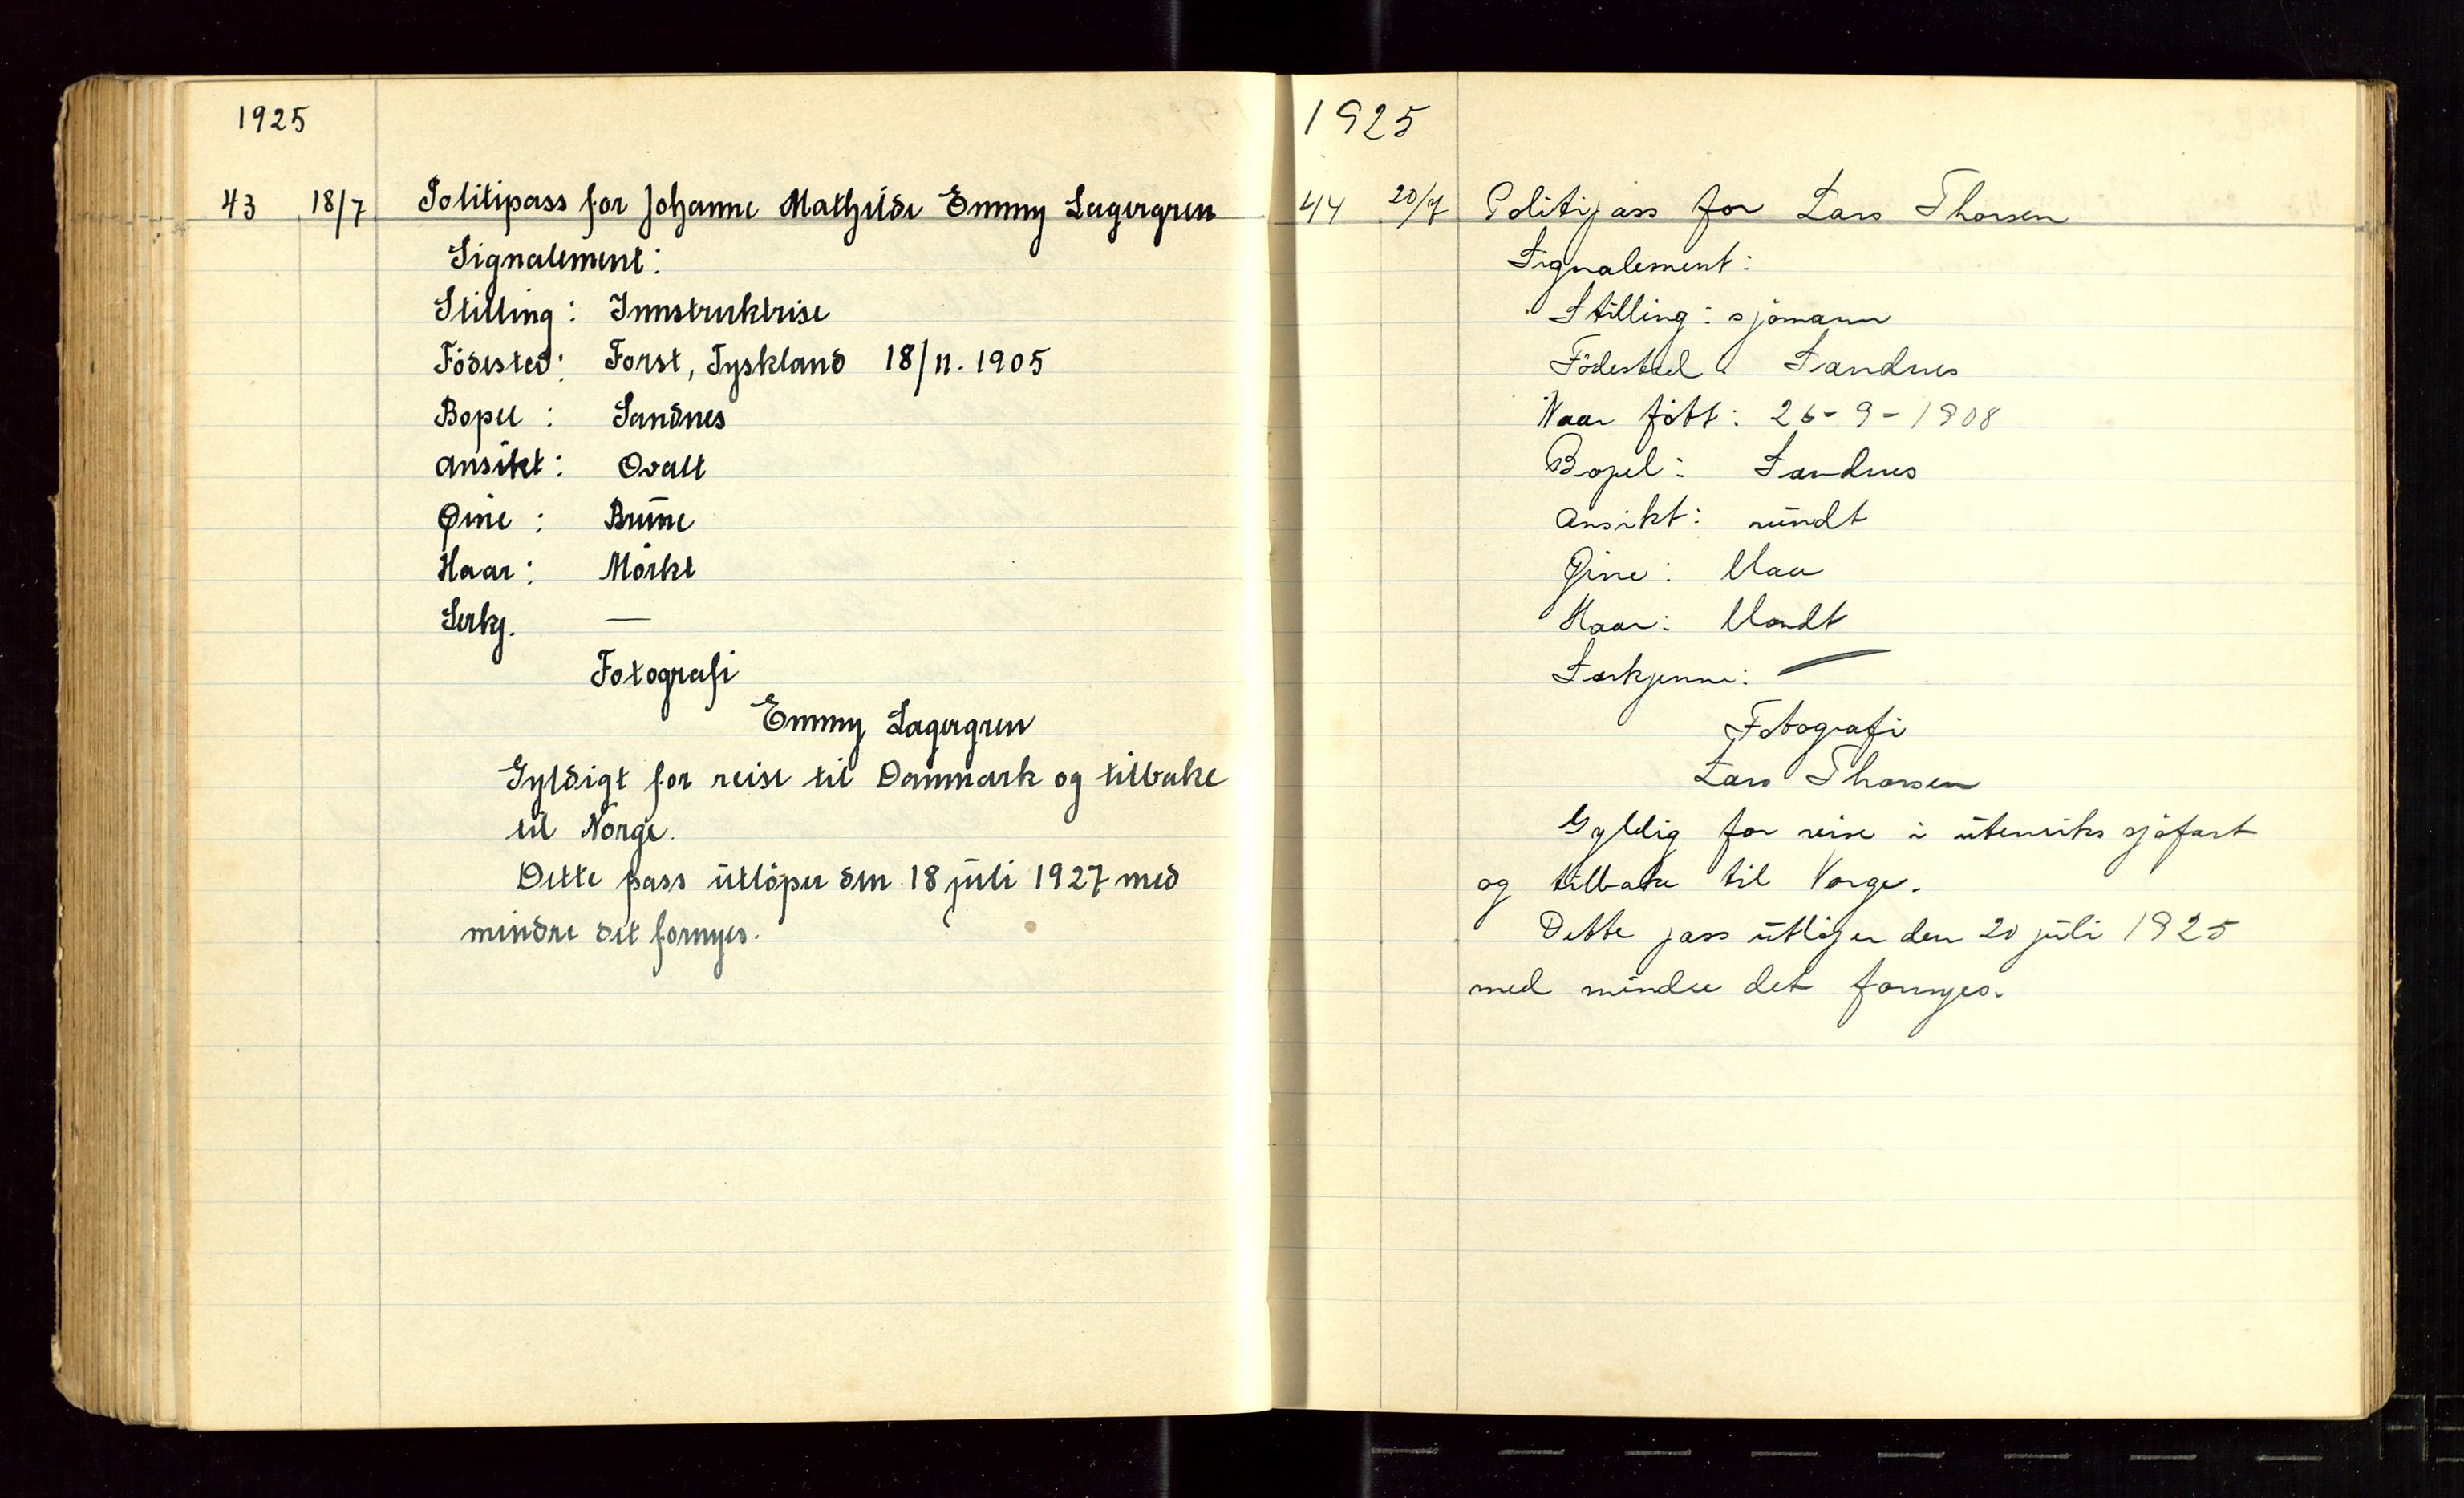 1925
43 18/7 Politipass for Johanne Mathilde Emmy Lagergren
Signalement:
Stilling: Innstruktrise
Födested: Forst, Tyskland 18/11. 1905
Bopel: Sandnes
Ansikt: Ovalt
Øine: Brune
Haar: Mörkt
Serkj. —
Fotografi
Emmy Lagergren
Gyldigt for reise til Danmark og tilbake
til Norge.
Dette pass utlöper den 18 juli 1927 med
mindre det fornyes.
1925
44 20/7 Politipass for Lars Thorsen
Signalement:
Stilling: sjömann
Födested: Sandnes
Naar fött: 26-9-1908
Bopel: Sandnes
Ansikt: rundt
Øine: blaa
Haar: blondt
Særkjenne: —
Fotografi
Lars Thorsen
Gyldig for reise i utenriks sjöfart
og tilbake til Norge.
Dette pass utlöper den 20 juli 1925
med mindre det fornyes.